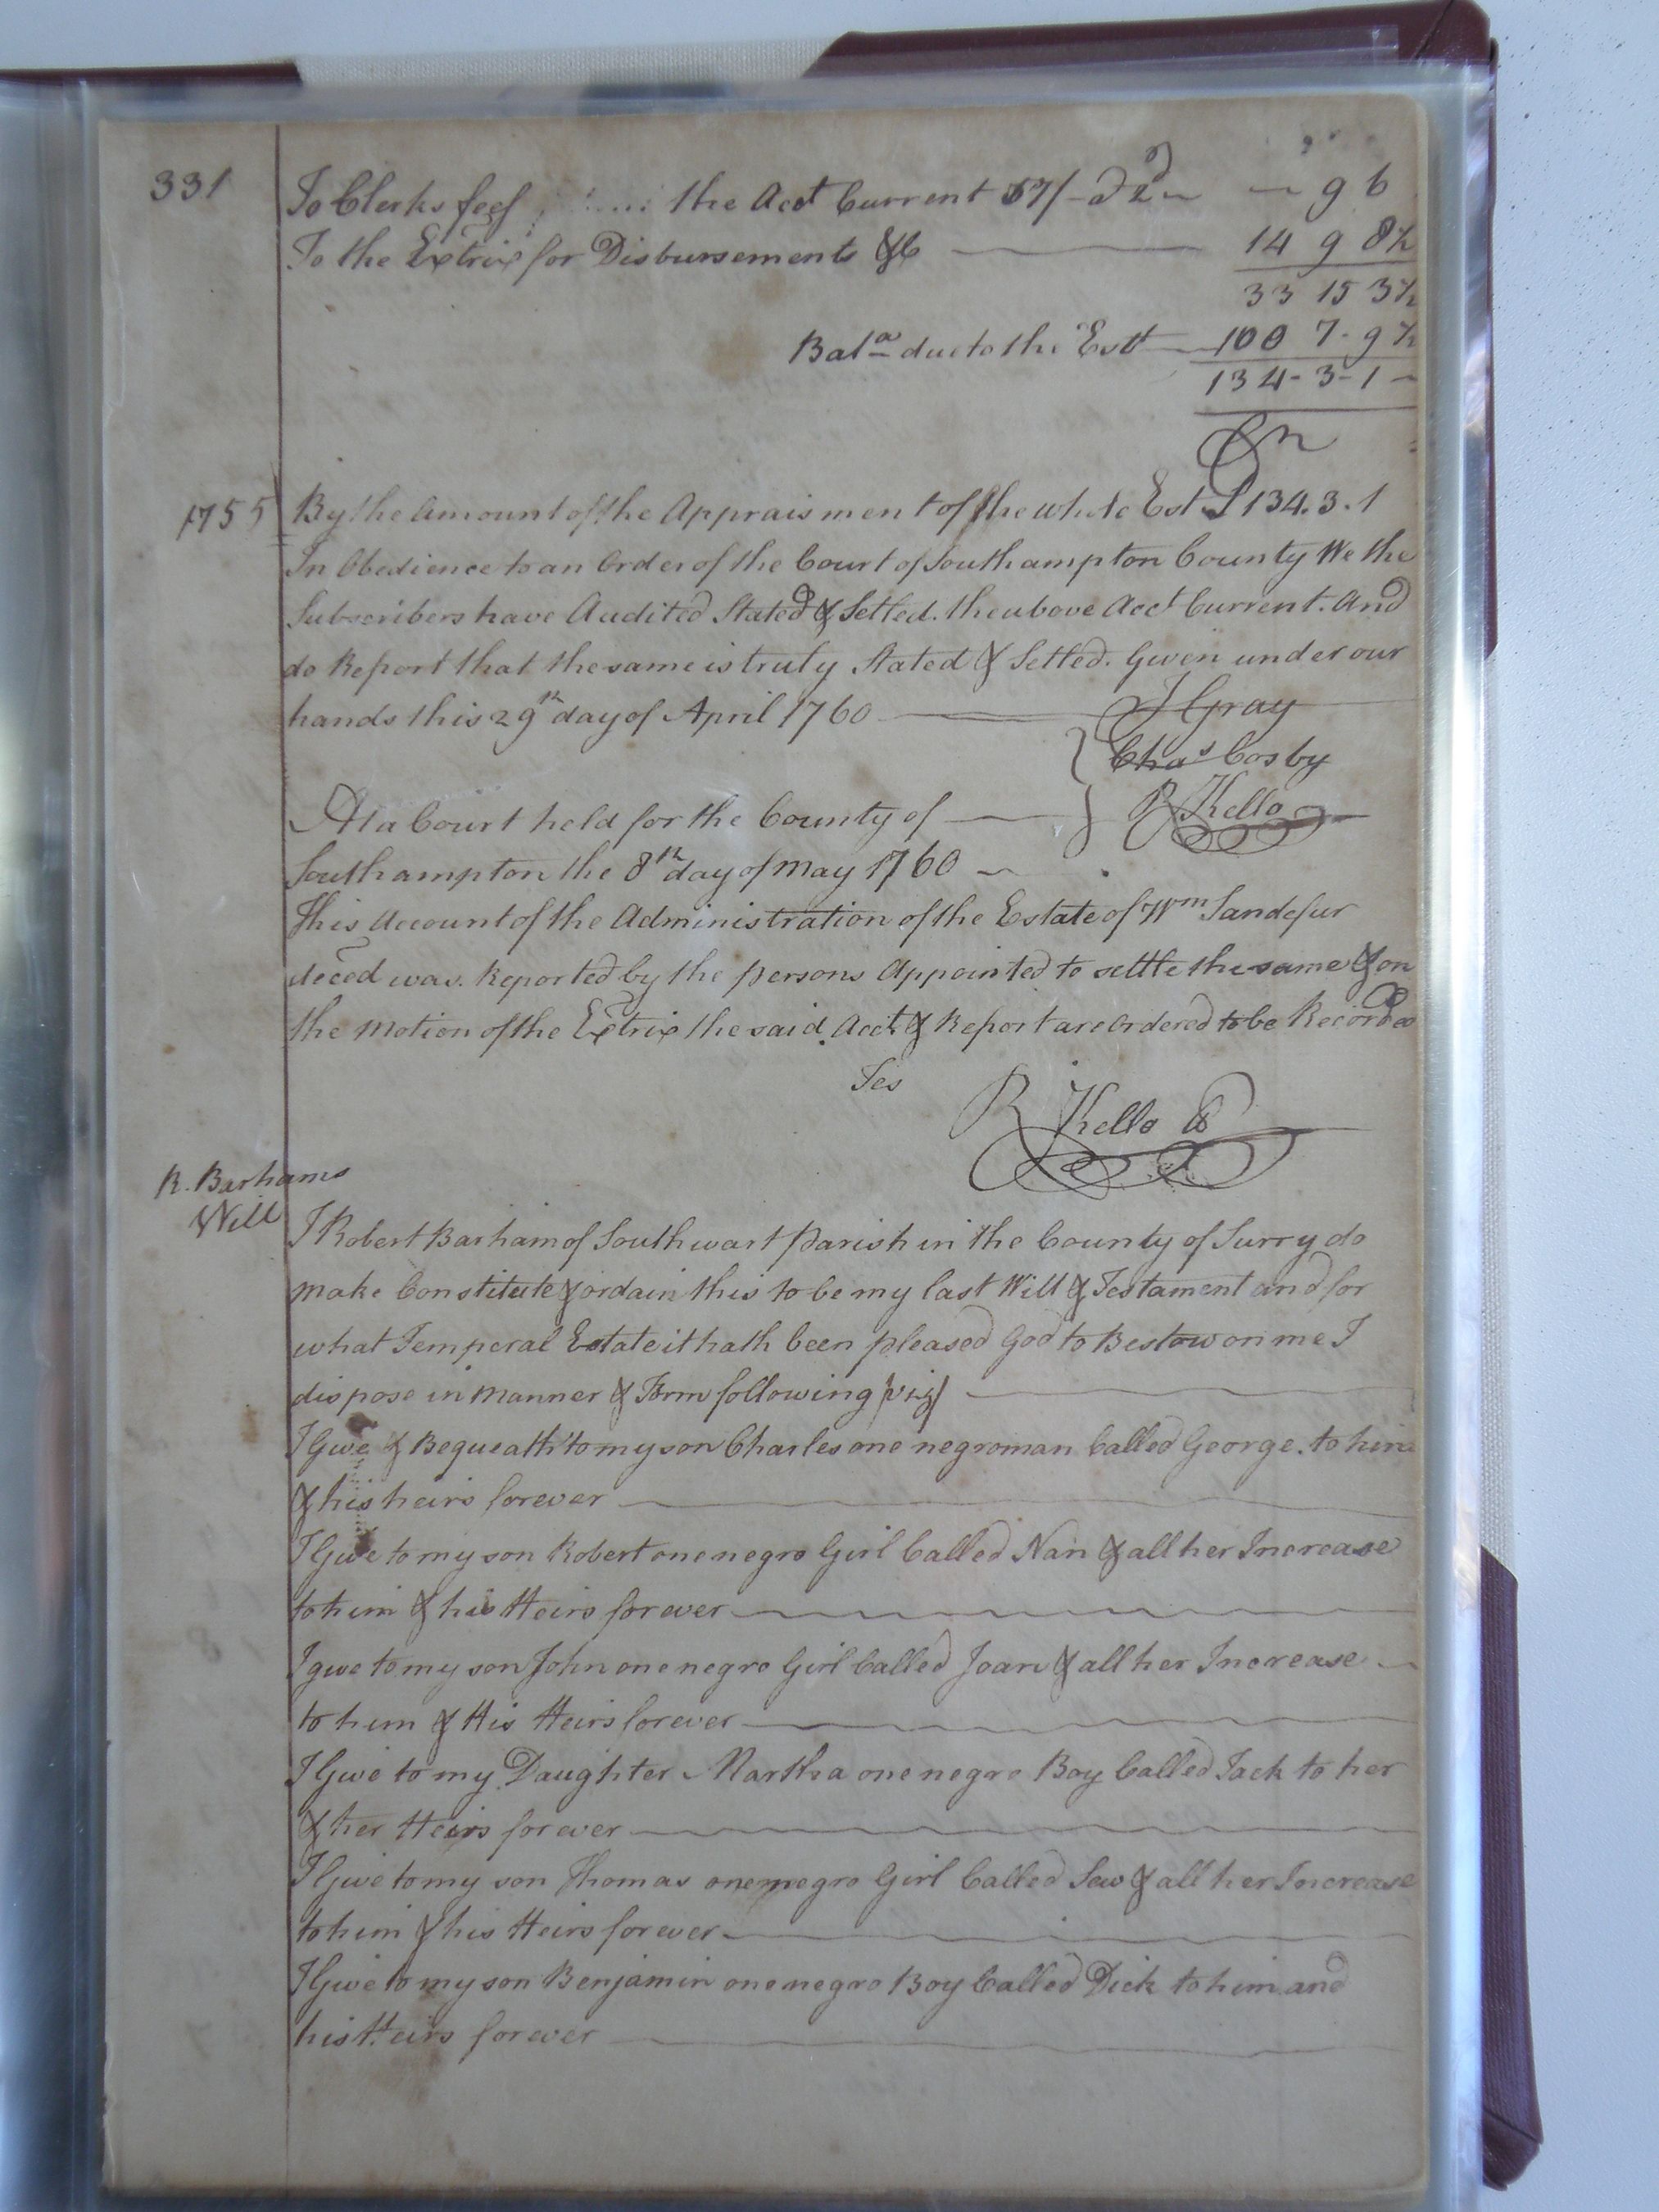 331
To Clerks fees the Acct Current 57/-d2 — 9 6
To the Extrix for Disbursements &c 14 9 8½
33 15 3½
Bala due to the Estt 100 7-9½
134-3-1-
1755 By the Amount of the Appraisment of the whole Est £134.3.1
In Obedience to an Order of the Court of Southampton County We the
Subscribers have Audited Stated & Setled. the above Acct Current. And
do Report that the same is truly Stated & Setled. Given under our
hands this 29th day of April 1760
J Gray
Chas Cosby
R Kello
At a Court held for the County of
Southampton the 8th day of May 1760
This Account of the Administration of the Estate of Wm Sandefur
deced was. Reported by the persons Appointed to settle the same & on
the Motion of the Extrix the said Acct & Report are Ordered to be Recorded
Tes
R Kello Cl
R. Barhams
Will
I Robert Barham of Southwart parish in the County of Surry do
make Constitute & ordain this to be my last Will & Testament and for
what Temperal Estate it hath been pleased God to Bestow on me I
dispose in Manner & Form following (viz)
I Give & Bequeath to my son Charles one negro man Called George. to him
& his heirs forever
I Give to my son Robert one negro Girl Called Nan & all her Increase
to him & his Heirs forever
I give to my son John one negro Girl Called Joan & all her Increase
to him & His Heirs forever
I Give to my Daughter Martha one negro Boy Called Jack to her
& her Heirs forever
I Give to my son Thomas one negro Girl Called Sew & all her Increase
to him & his Heirs forever
I Give to my son Benjamin one negro Boy Called Dick to him and
his Heirs forever